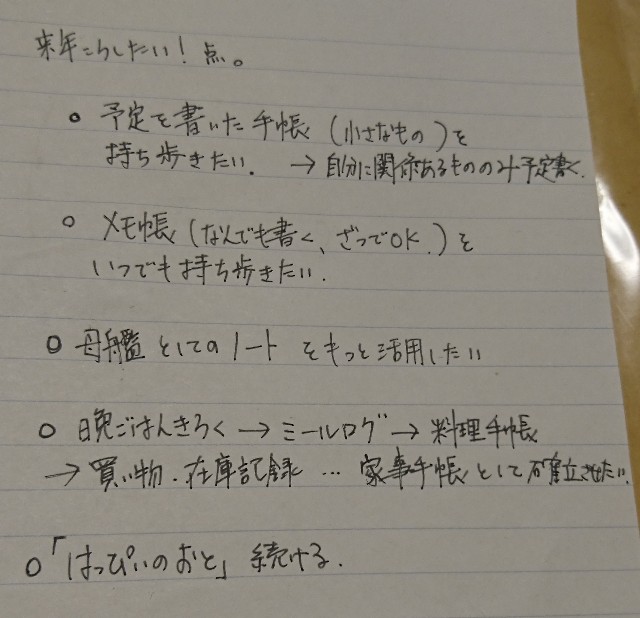 来年こうしたい！点。
○ 予定を書いた手帳（小さなもの）を
持ち歩きたい. → 自分に関係あるもののみ予定書く.
○ メモ帳（なんでも書く、ざつでOK.）を
いつでも持ち歩きたい.
○ 母艦としてのノートをもっと活用したい
○ 晩ごはんきろく→ミールログ→料理手帳
→買い物.在庫記録…家事手帳として確立させたい.
○「はっぴぃのおと」続ける.